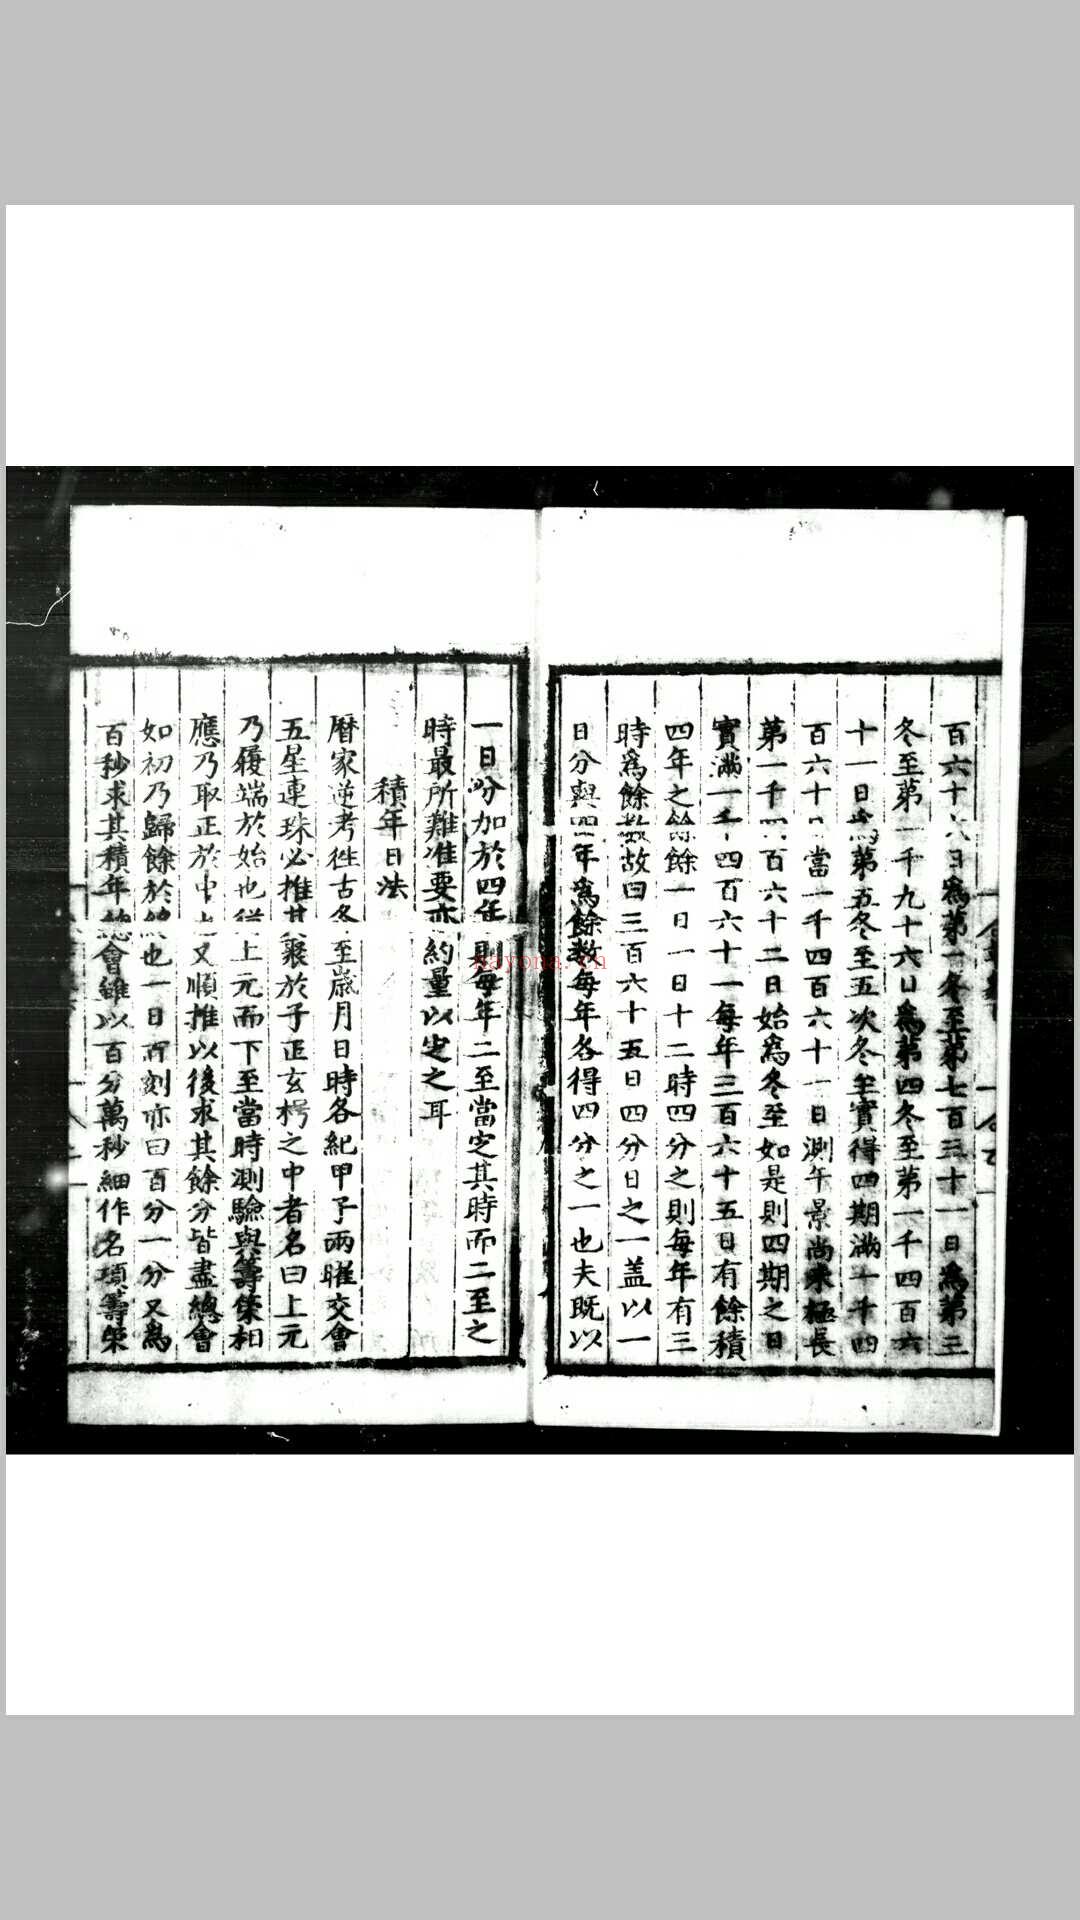 百六十六日為第一冬至第七百三十一日為第三
冬至第一千九十六日為第四冬至第一千四百六
十一日為第五冬至五次冬至實得四期滿一千四
百六十日當一千四百六十一日測午景尚未極長
第一千四百六十二日始為冬至如是則四期之日
實滿一千四百六十一每年三百六十五日有餘積
四年之餘餘一日一日十二時四分之則每年有三
時為餘數故曰三百六十五日四分日之一盖以一
日分與四年為餘數每年各得四分之一也夫既以
一日分加於四年則每年二至當定其時而二至之
時最所難准要亦約量以定之耳
積年日法
曆家逆考徃古冬至歲月日時各紀甲子兩曜交會
五星連珠必推其聚於子正玄枵之中者名曰上元
乃履端於始也從上元而下至當時測驗與籌策相
應乃取正於中也又順推以後求其餘分皆盡總會
如初乃歸餘於終也一日百刻亦曰百分一分又為
百秒求其積年總會雖以百分萬秒細作名項籌策
nayona.cn